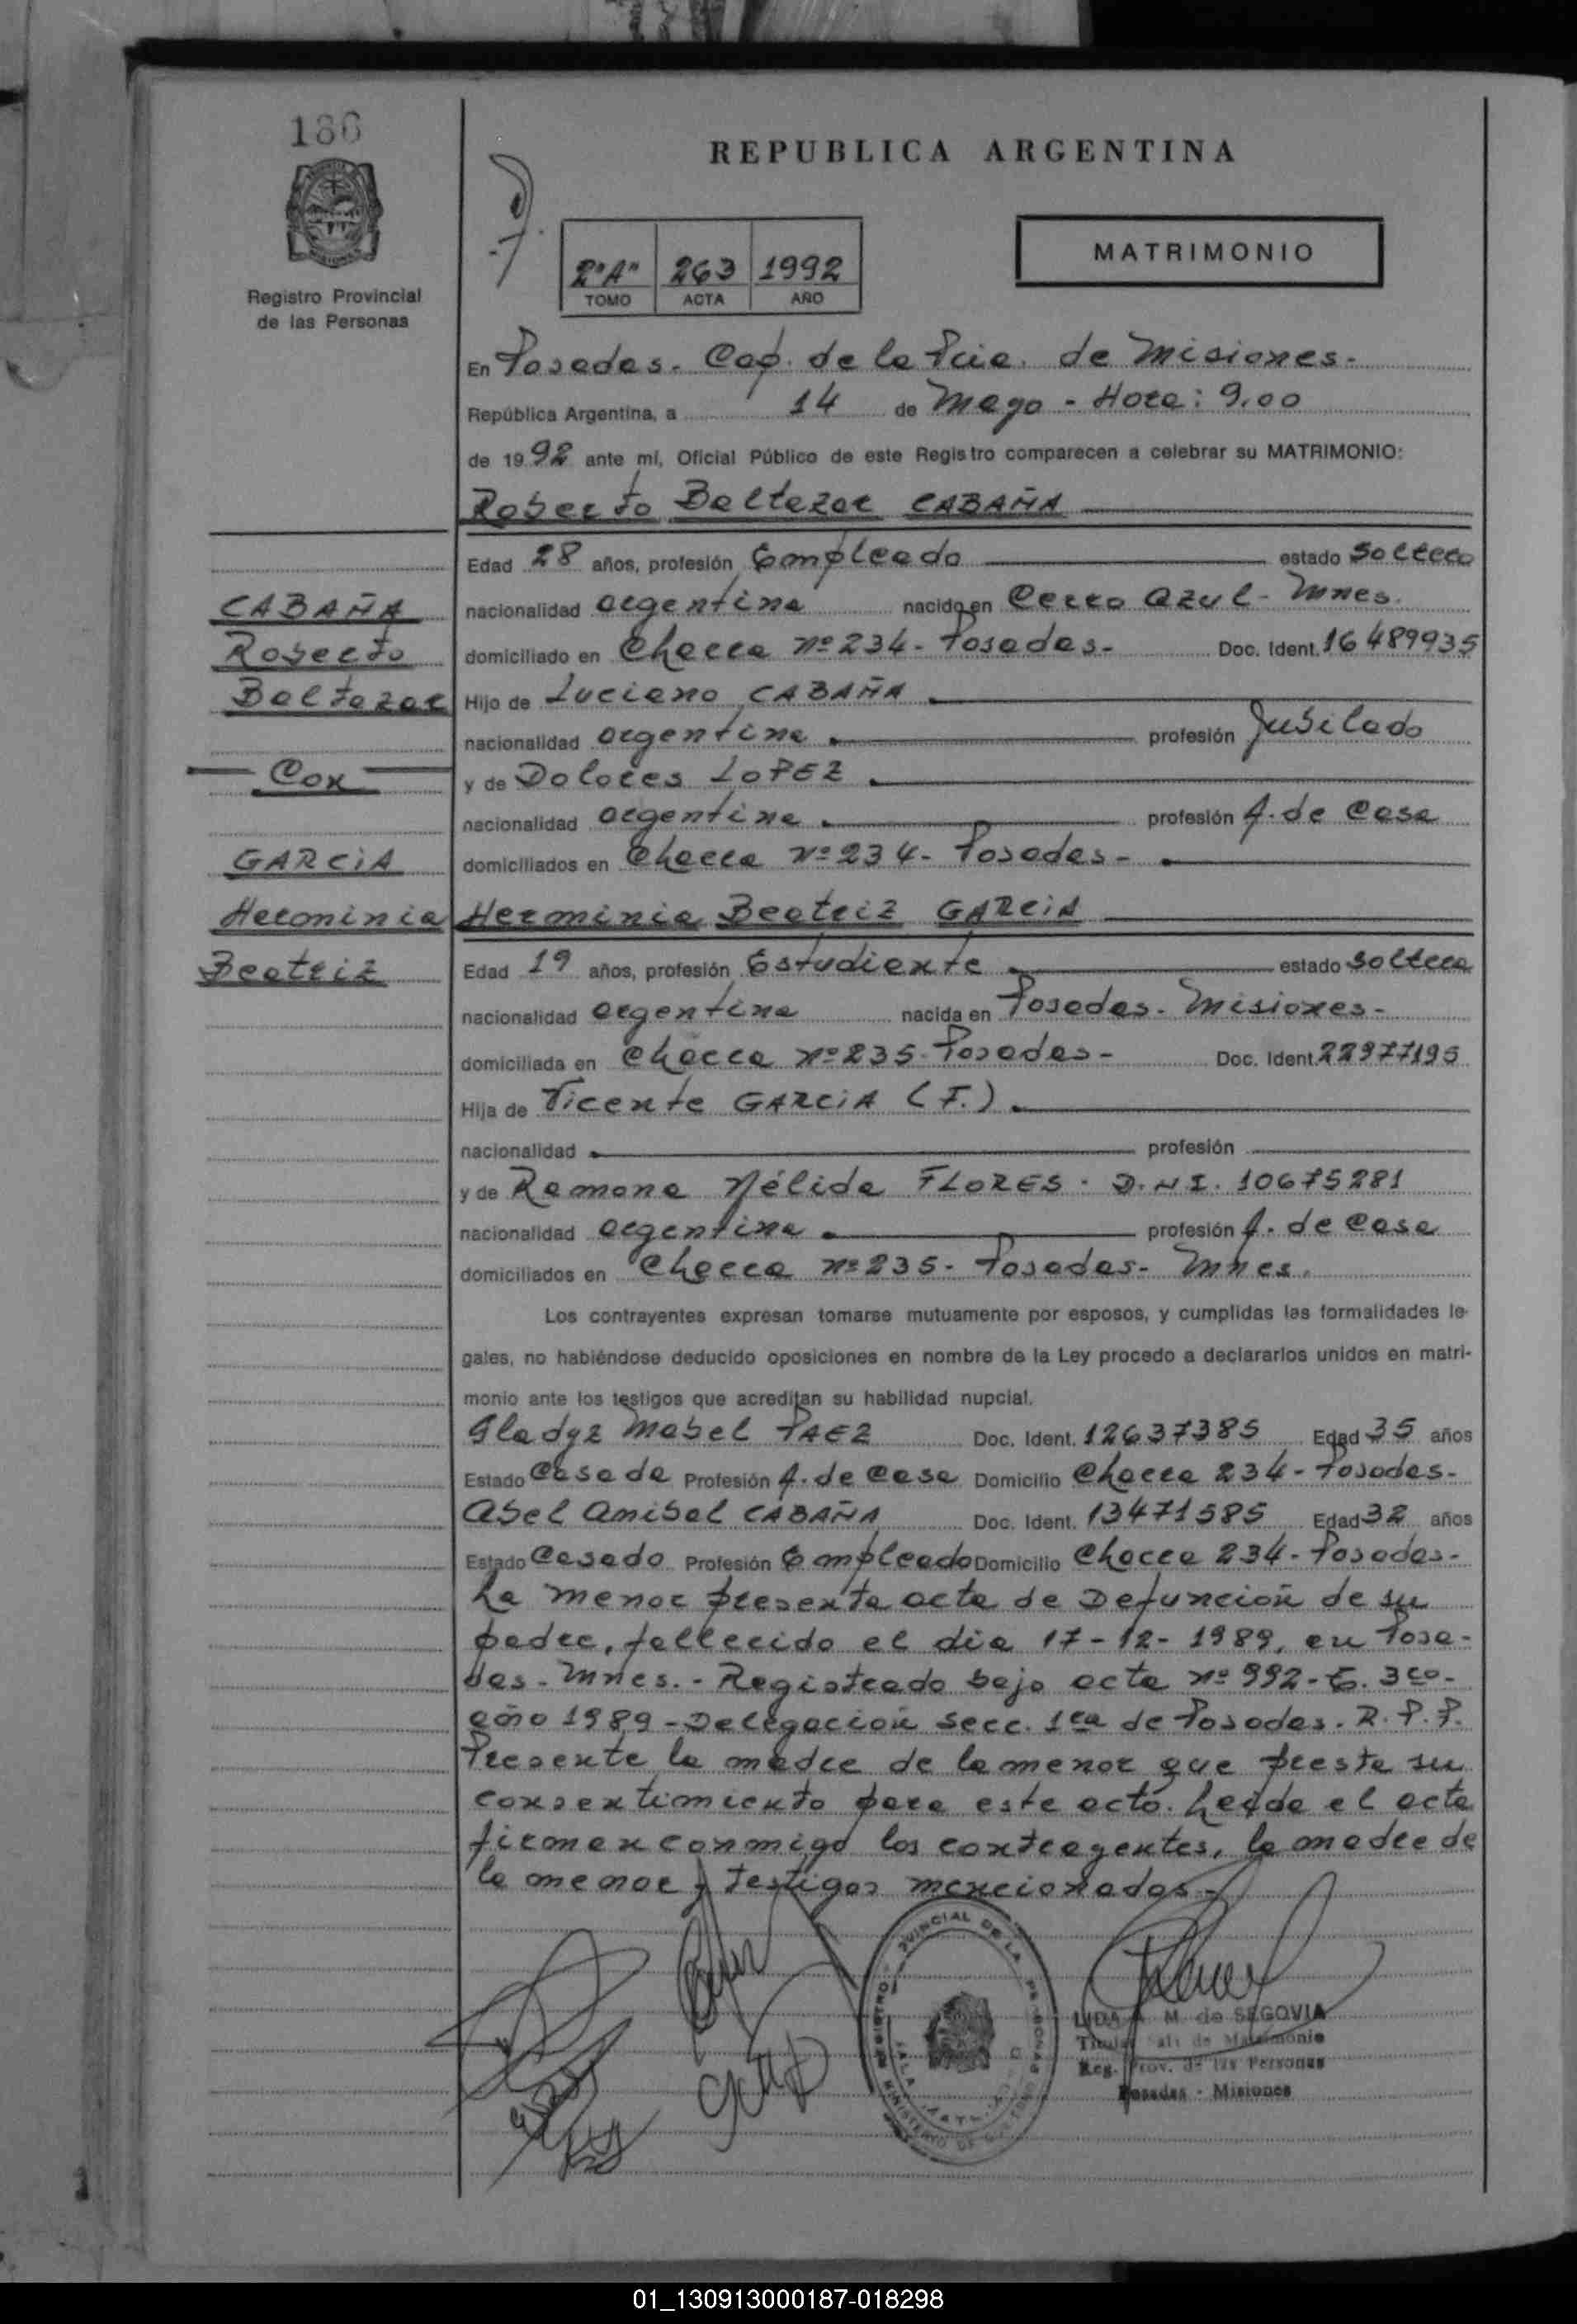 186
REPUBLICA ARGENTINA
MATRIMONIO
2º"A" 263 1992
TOMO ACTA AÑO
Registro Provincial
de las Personas
En Posadas. Cap. de la Pcia. de Misiones.
República Argentina, a 14 de Mayo - Hora: 9.00
de 1992 ante mí, Oficial Público de este Registro comparecen a celebrar su MATRIMONIO:
Roberto Baltazar CABAÑA
Edad 28 años, profesión Empleado estado soltero
CABAÑA
nacionalidad argentina nacido en Cerro Azul - Mnes.
Roberto
domiciliado en Chacra Nº 234 - Posadas - Doc. Ident. 16489935
Baltazar
Hijo de Luciano CABAÑA
nacionalidad argentina profesión Jubilado
Con
y de Dolores LOPEZ
nacionalidad argentina profesión A. de Casa
GARCIA
domiciliados en Chacra Nº 234 - Posadas -
Herminia
Herminia Beatriz GARCIA
Beatriz
Edad 19 años, profesión Estudiante estado soltera
nacionalidad argentina nacida en Posadas - Misiones -
domiciliada en Chacra Nº 235 - Posadas - Doc. Ident. 22977195
Hija de Vicente GARCIA (F.)
nacionalidad profesión
y de Ramona Nélida FLORES - D.N.I. 10675281
nacionalidad argentina profesión A. de Casa
domiciliados en Chacra Nº 235 - Posadas - Mnes.
Los contrayentes expresan tomarse mutuamente por esposos, y cumplidas las formalidades le-
gales, no habiéndose deducido oposiciones en nombre de la Ley procedo a declararlos unidos en matri-
monio ante los testigos que acreditan su habilidad nupcial.
Gladyz Mabel PAEZ Doc. Ident. 12637385 Edad 35 años
Estado Casada Profesión A. de Casa Domicilio Chacra 234 - Posadas -
Abel Anibal CABAÑA Doc. Ident. 13471585 Edad 32 años
Estado Casado Profesión Empleado Domicilio Chacra 234 - Posadas -
La menor presenta acta de Defunción de su
padre, fallecido el dia 17-12-1989, en Posa-
das - Mnes. - Registrado bajo acta Nº 992 - T. 3ro -
año 1989 - Delegación Secc. 1ra de Posadas. R. P. P.
Presente la madre de la menor que presta su
consentimiento para este acto. Leída el acta
firman conmigo los contrayentes, la madre de
la menor y testigos mencionados -
LIDA A. M. de SEGOVIA
Reg. Prov. de las Personas
Posadas - Misiones
01_130913000187-018298